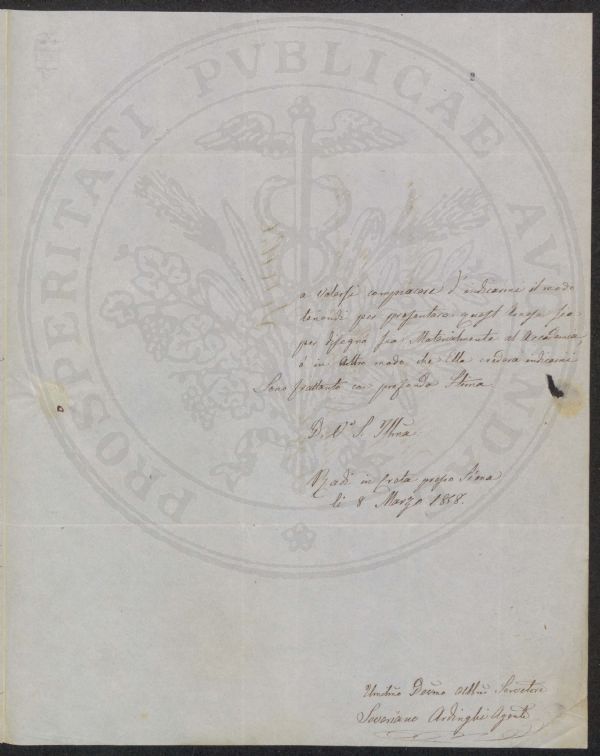 PROSPERITATI PUBLICAE AUGENDAE
2
a volersi compiacere d'indicarne il modo
tenendi per presentare quest' sia
per disegno sia Materialmente al Accademia
ó in altro modo che Ella credera indicarmi
Sono frattanto con profonda Stima
D. V.a S. Illma
Radi in Creta presso Siena
li 8 Marzo 1858.
Umilmo Devmo Servitore
Severiano Ardinghi Agente